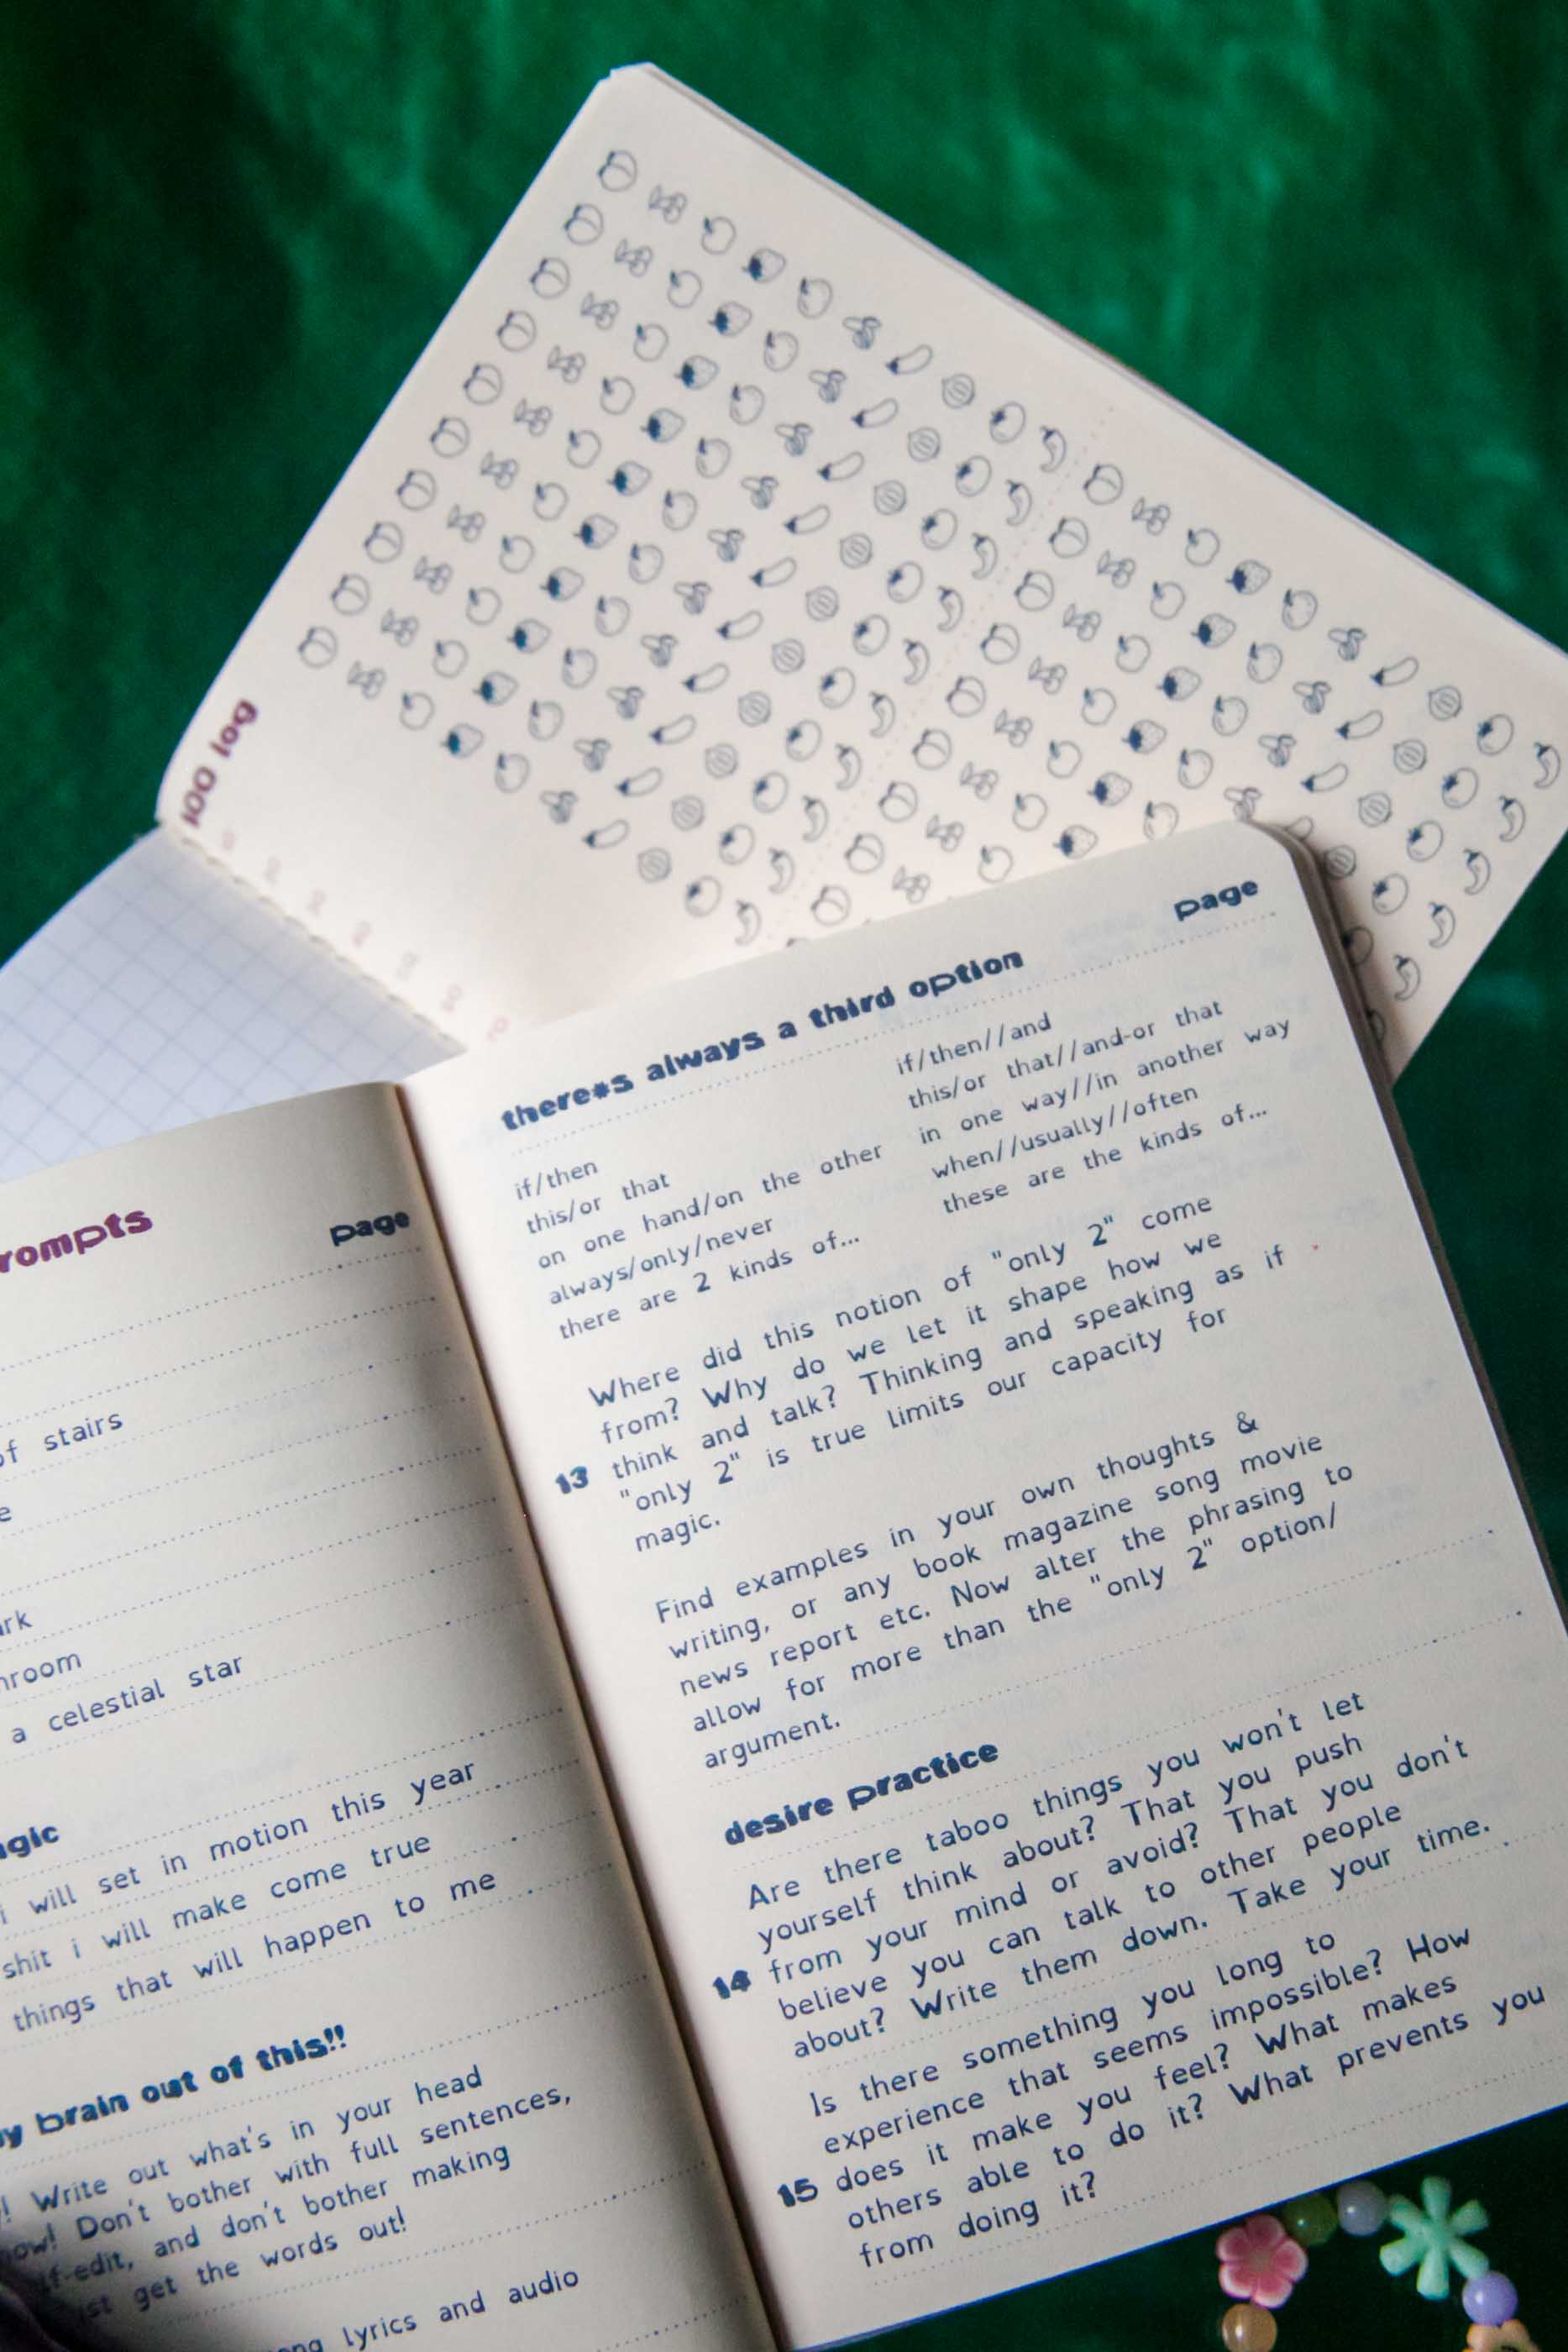 100 log
rompts
page
of stairs
a celestial star
i will set in motion this year
shit i will make come true
things that will happen to me
brain out of this!!
Write out what's in your head
Don't bother with full sentences,
and don't bother making
get the words out!
lyrics and audio
there*s always a third option
page
if/then
this/or that
on one hand/on the other
always/only/never
there are 2 kinds of...
if/then//and
this/or that//and-or that
in one way//in another way
when//usually//often
these are the kinds of...
13
Where did this notion of "only 2" come
from? Why do we let it shape how we
think and talk? Thinking and speaking as if
"only 2" is true limits our capacity for
magic.
Find examples in your own thoughts &
writing, or any book magazine song movie
news report etc. Now alter the phrasing to
allow for more than the "only 2" option/
argument.
desire practice
14
Are there taboo things you won't let
yourself think about? That you push
from your mind or avoid? That you don't
believe you can talk to other people
about? Write them down. Take your time.
15
Is there something you long to
experience that seems impossible? How
does it make you feel? What makes
others able to do it? What prevents you
from doing it?